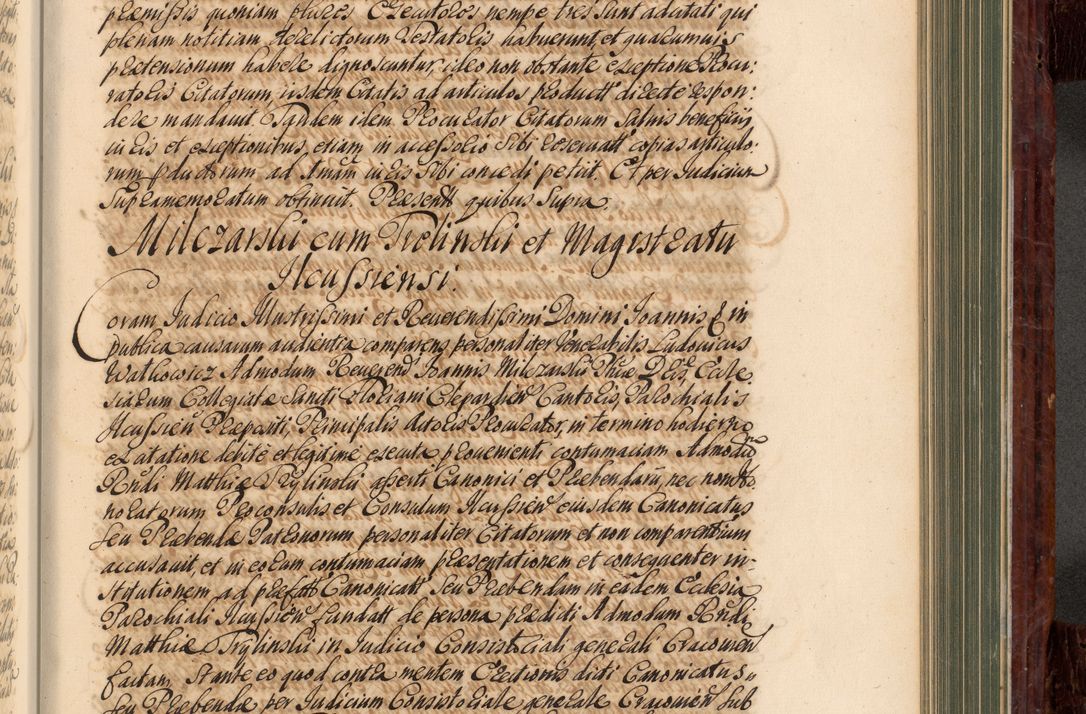 præmissis quoniam plures Executores nempe tres sunt adcitati qui
plenam notitiam derelictorum Testatoris habuerunt, et quarumuis
prætensionum habere dignoscuntur, ideo non obstante exceptione Procu:
ratoris Citatorum, iisdem Citatis ad articulos product directe respon:
dere mandauit. Tandem idem Procurator Citatorum saluis beneficijs
iuris et exceptionibus, etiam in accessorio sibi reseruatis copias articulo:
rum productorum ad primam iuris sibi concedi petiit. Et per Judicium
Supramemoratum obtinuit. Præsentt quibus supra.
Milczarski cum Trelinski et Magistratu
Ilcussiensi.
Coram Judicio Illustrissimi et Reuerendissimi Domini Joannis & in
publica causarum audientia comparens personaliter Venerabilis Ludouicus
Watkowicz Admodum Reuerend Joannis Milczarski Eccle
siarum Collegiatæ Sancti Floriani Cleparden Cantoris, Parochialis
Ilcussien Præpositi, Principalis Actoris Procurator, in termino hodierno
ex citatione debite et legitime executa proueniente contumaciam Admodum
Rndi Matthiæ Trylinski asserti Canonici et Præbendarij, nec non
noratorum Proconsulis et Consulum Ilcussien eiusdem Canonicatus
seu Præbendæ Patronorum personaliter Citatorum et non comparentium
accusauit, et in eorum contumaciam præsentationem et consequenter in-
stitutionem ad præfatt Canonicatt seu Præbendam in eadem Ecclesia
Parochiali Ilcussien fundatt de persona prædicti Admodum Rndi
Matthiæ Trylinski in Judicio Consistoriali generali Cracouien
factam, stante eo quod contra mentem Erectionis dicti Canonicatus
seu Præbendæ per Judicium Consistoriale generale Cracouien sub